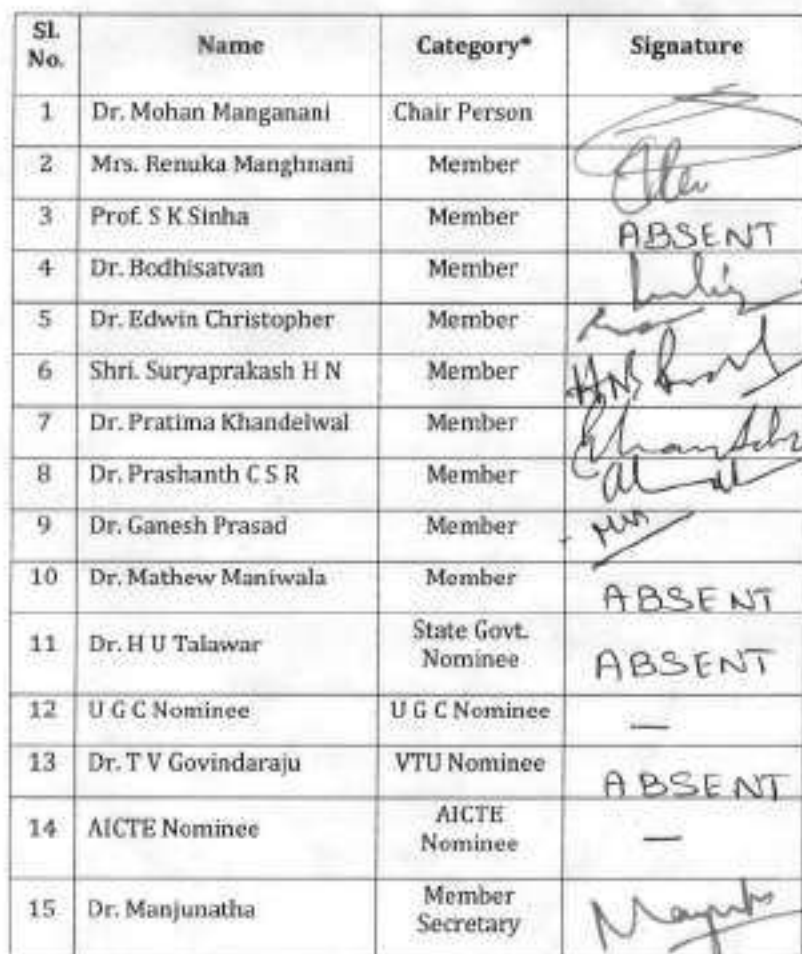 Sl. No. Name Category* Signature
1 Dr. Mohan Manganani Chair Person
2 Mrs. Renuka Manghnani Member
3 Prof. S K Sinha Member ABSENT
4 Dr. Bodhisatvan Member
5 Dr. Edwin Christopher Member
6 Shri. Suryaprakash H N Member
7 Dr. Pratima Khandelwal Member
8 Dr. Prashanth C S R Member
9 Dr. Ganesh Prasad Member
10 Dr. Mathew Maniwala Member ABSENT
11 Dr. H U Talawar State Govt. Nominee ABSENT
12 U G C Nominee U G C Nominee —
13 Dr. T V Govindaraju VTU Nominee ABSENT
14 AICTE Nominee AICTE Nominee —
15 Dr. Manjunatha Member Secretary